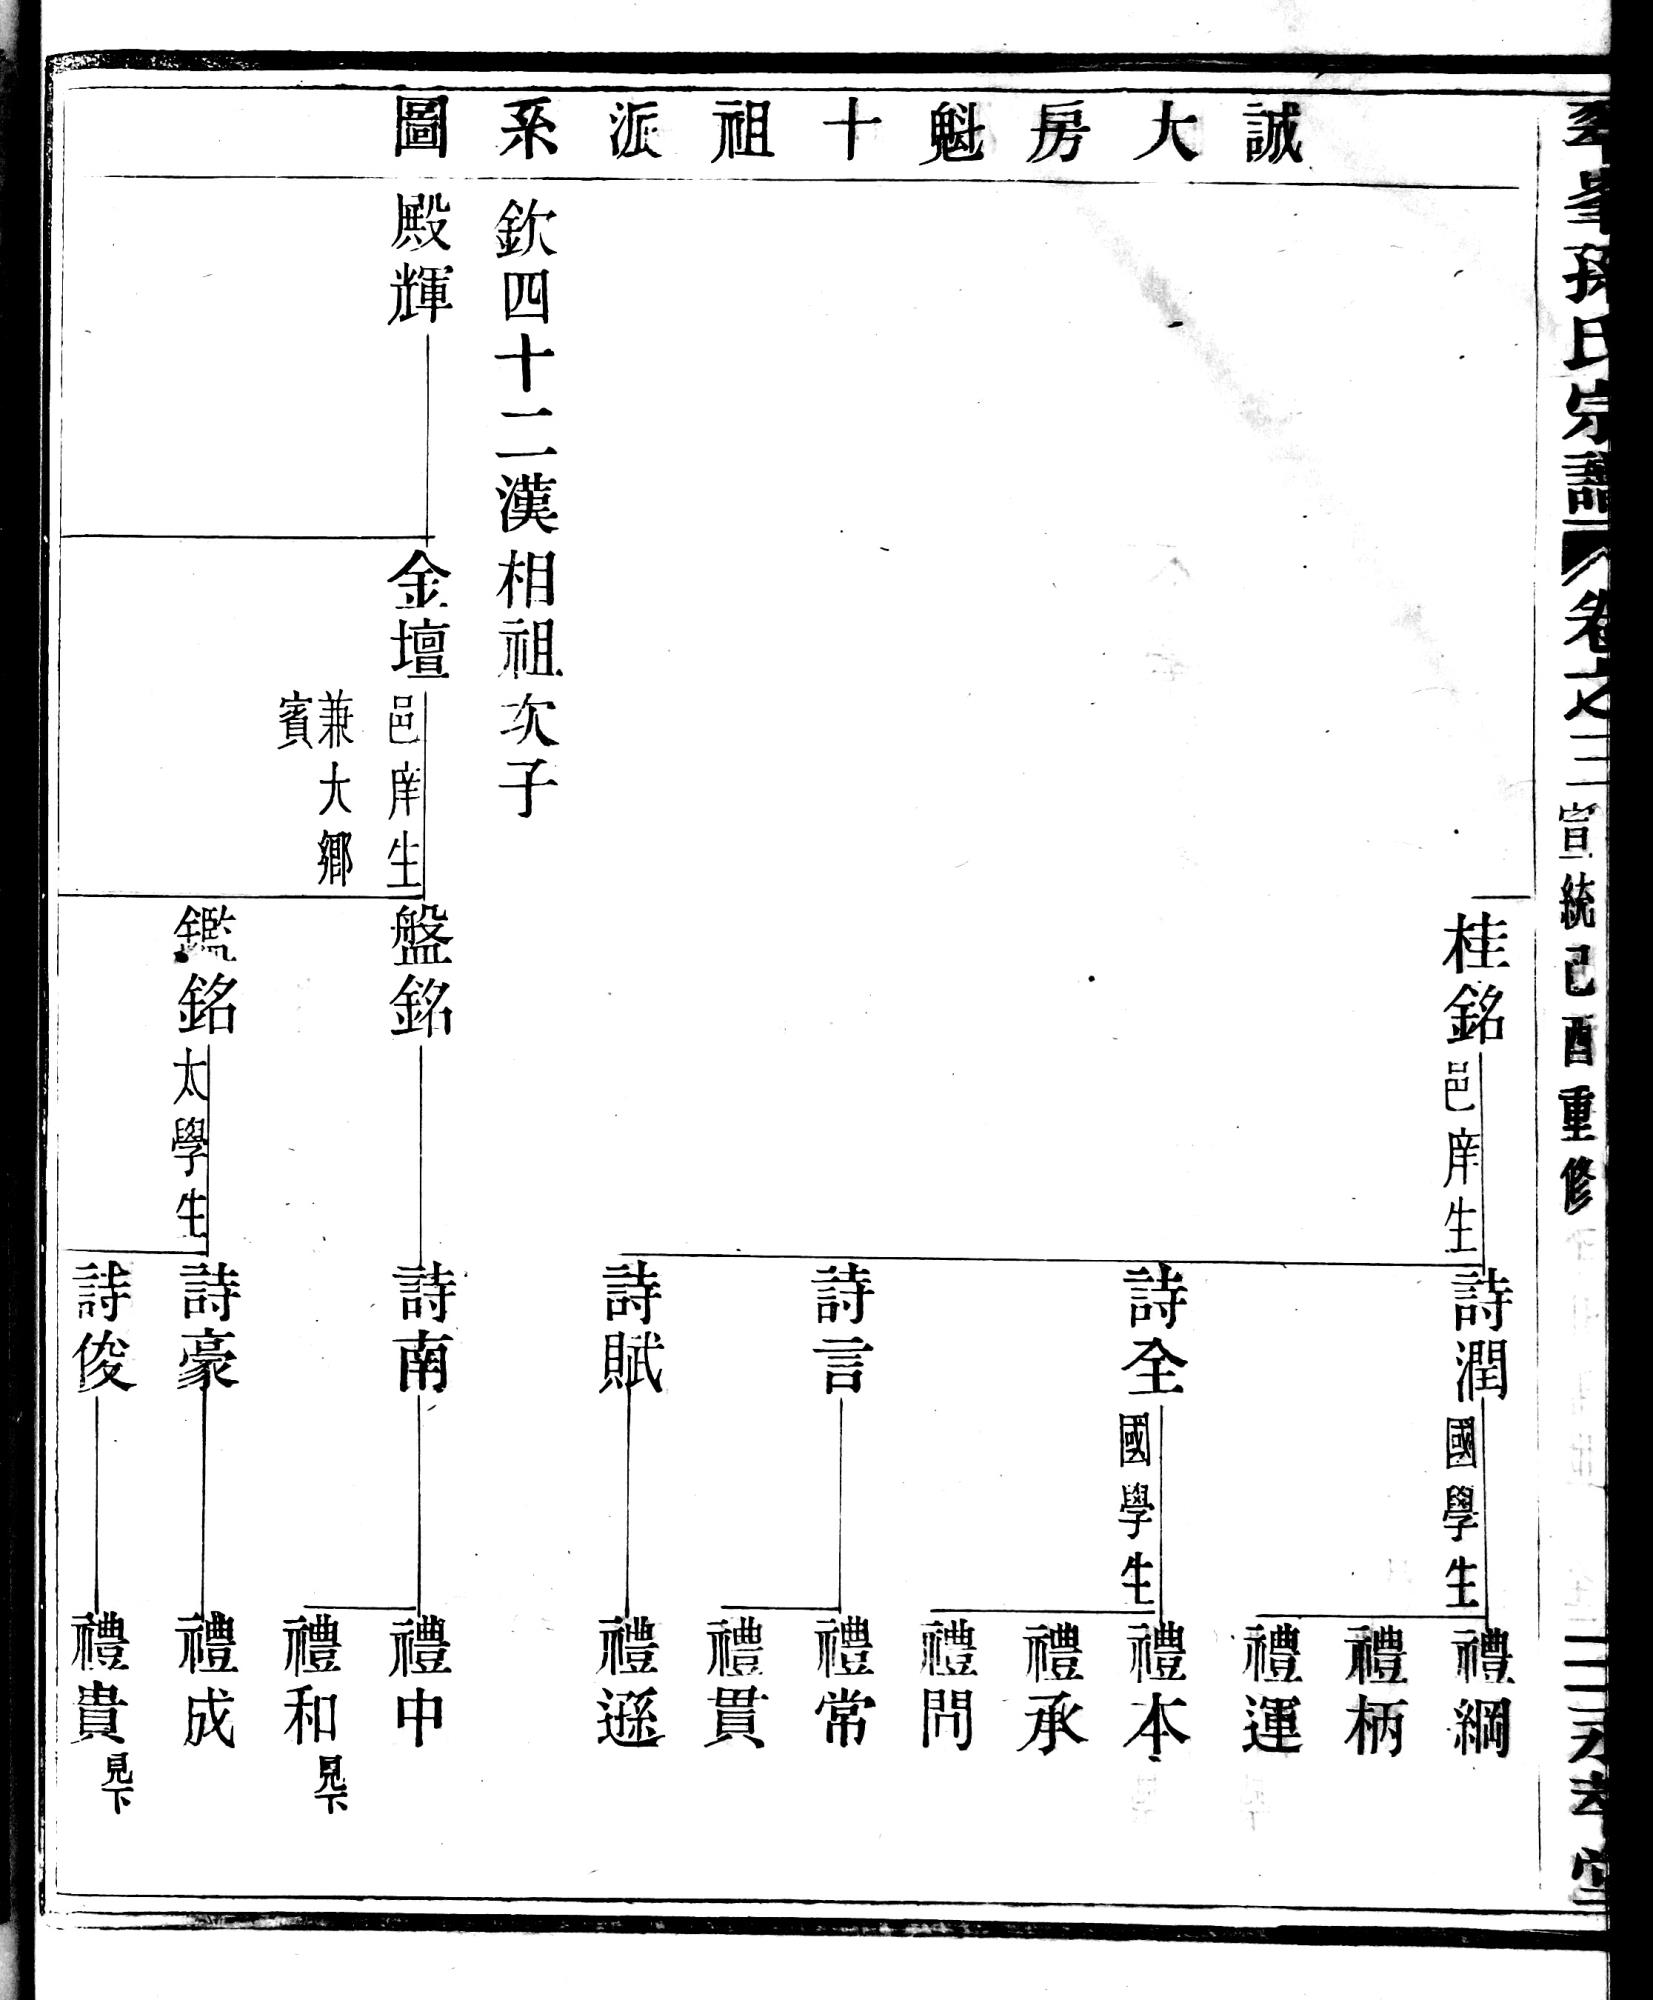 孫氏宗譜
卷之三
宣統己酉重修
誠大房魁十祖派系圖
桂銘
邑庠生
詩潤
國學生
禮綱
禮柄
禮運
詩全
國學生
禮本
禮承
禮問
詩言
禮常
禮貫
詩賦
禮遜
欽四十二漢相祖次子
殿輝
金壇
邑庠生
兼大鄉
賓
盤銘
詩南
禮中
禮和
見下
鑑銘
太學生
詩豪
禮成
詩俊
禮貴
見下